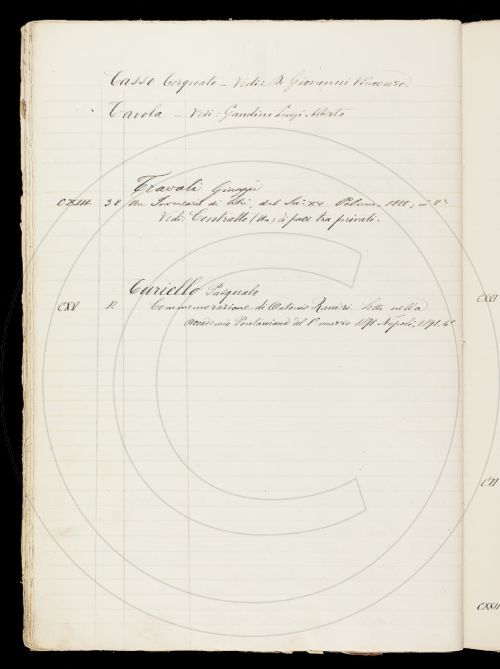 Tasso Torquato — Vedi: Di Giovanni Vincenzo.
Tavola — Vedi: Gandini Luigi Alberto
Travali Giuseppe
CXIII 38 Un Inventario di libri, del Sec. XV. Palermo, 1888, in 8°
Vedi: Contratto (Un) di pace tra privati.
Turiello Pasquale
CXV 12 Commemorazione di Antonio Ranieri letta nella
Accademia Pontaniana del 1° marzo 1891. Napoli, 1891. 4°
CXXII